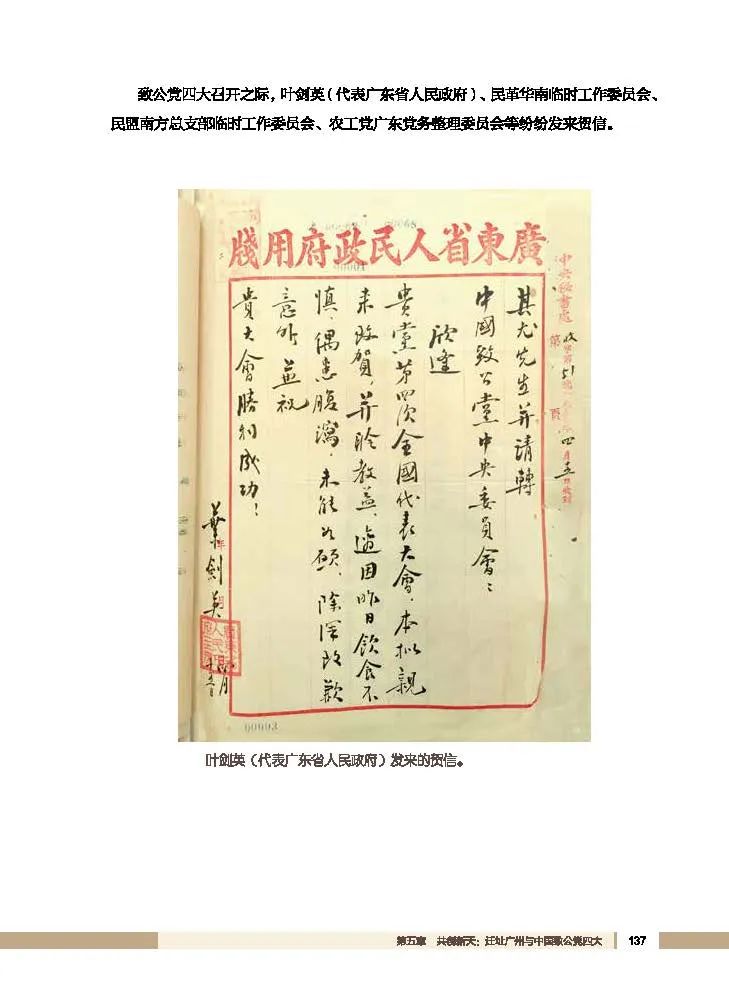 致公党四大召开之际，叶剑英（代表广东省人民政府）、民革华南临时工作委员会、
民盟南方总支部临时工作委员会、农工党广东党务整理委员会等纷纷发来贺信。
廣東省人民政府用牋
中央秘書處
第 頁
其尤先生并請轉
中國致公黨中央委員會：
欣逢
貴黨第四次全國代表大會，本拟親
来致賀，并聆教益，適因昨日飲食不
慎，偶患腹瀉，未能如願，除深致歉
意外，並祝
貴大會勝利成功！
葉劍英
00003
叶剑英（代表广东省人民政府）发来的贺信。
第五章 共创新天：迁址广州与中国致公党四大
137